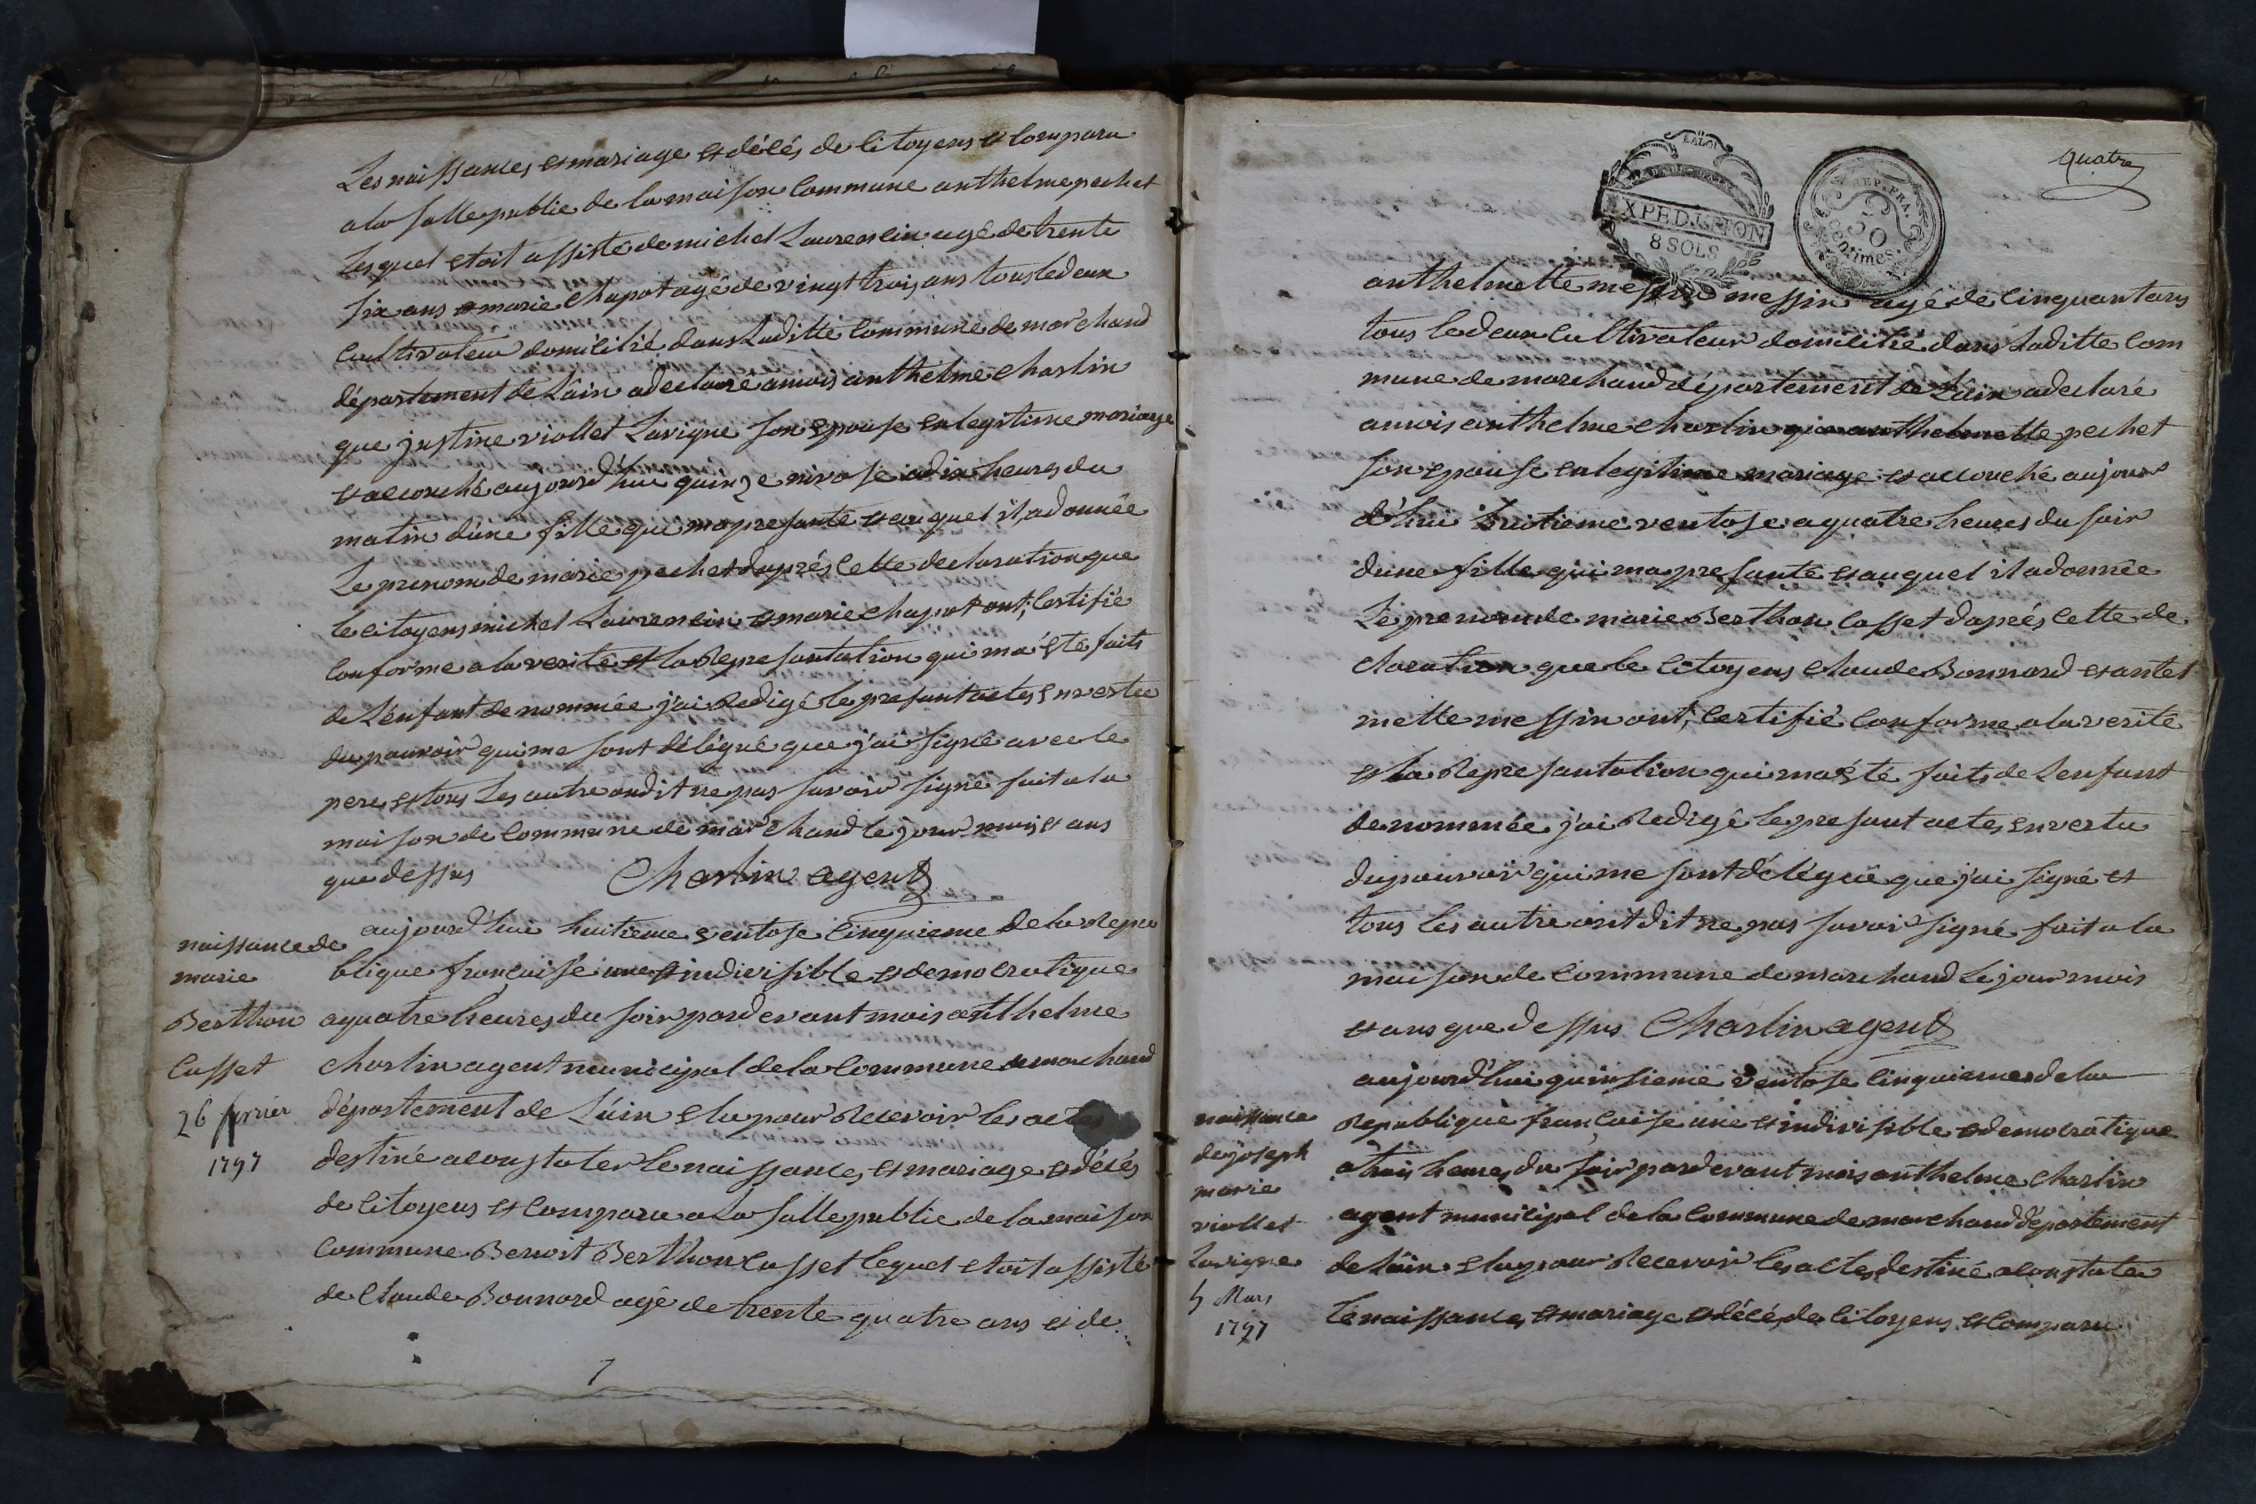 Les naissances et mariage et décés de Citoyens et Comparu
a la salle public de la maison Commune anthelme pechet
Lesquel etoit assisté de michel Laurencin agé de trente
six ans et marie Chapot agé de vingt trois ans tous ledeux
Cultivateur domicilié dans Laditte Commune de marchand
département de Lain a declaré amois anthelme Charlin
que justine viollet Lavigne son epouse en legitime mariage
et accouché aujourd'hui quinze nivose a dix heures du
matin d'une fille qui ma presanté et auquel il a donnée
Le prenom de marie pechet d'aprés Cette declaration que
le Citoyens michel Laurencin et marie Chapot ont Certifié
Conforme a la verité et la Represantation qui ma été faits
de L'enfant denommée j'ai Redigé le presant actes en vertu
du pouvoir qui me sont délégué que j'ai signé avec le
pere et tous Les autre ondit ne pas savoir signé fait a la
maison de Commune de marchand le jour mois et ans
que dessus Charlin agent
naissance de
marie
Berthon
Casset
26 fevrier
1797
aujourd'hui huitieme ventose Cinquieme de la Repu
blique francaise une et indivisible et democratique
a quatre heures du soir pardevant mois anthelme
Charlin agent municipal de la Commune de marchand
département de Lain elu pour Recevoir les actes
destiné a constater le naissances et mariage et décés
de Citoyens et Comparu a la salle public de la maison
Commune Benoit Berthon Casset lequel etoit assisté
de Claude Bonnard agé de trente quatre ans et de
7
quatre
EXPEDITION
8 SOLS
REP. FRA.
50
Centimes
anthelmette messin messin agé de Cinquant ans
tous ledeux Cultivateur domicilié dans Laditte Com
mune de marchand département de Lain a declaré
amois anthelme Charlin que anthelmette pechet
son epouse en legitime mariage et accouché aujour
d'hui huitieme ventose a quatre heures du soir
d'une fille qui ma presanté et auquel il a donnée
Le prenom de marie Berthon Casset d'aprés Cette de
claration que le Citoyens Claude Bonnard et antel
mette messin ont Certifié Conforme a la verité
et La Represantation qui ma été faits de L'enfant
denommée j'ai Redigé le presant actes en vertu
du pouvoir qui me sont délégué que j'ai signé et
tous les autre ont dit ne pas savoir signé fait a la
maison de Commune de marchand Le jour mois
et ans que dessus Charlin agent
naissance
de joseph
marie
viollet
Lavigne
5 Mars
1797
aujourd'hui quinsieme ventose Cinquieme de la
Republique francaise une et indivisible et democratique
a trois heures du soir pardevant mois anthelme Charlin
agent municipal de la Commune de marchand département
de Lain elu pour Recevoir les actes destiné a constater
Le naissances et mariage et décés de Citoyens et Comparu